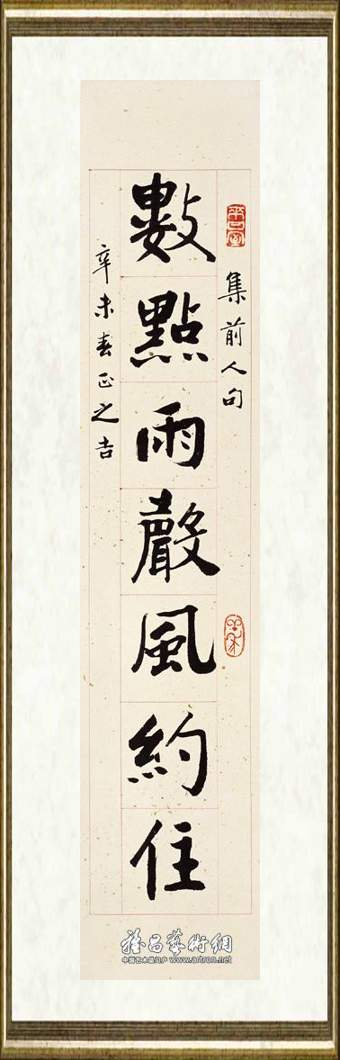 集前人句
數點雨聲風約住
辛未春正之吉
雅昌藝術網
中国艺术品门户 www.artron.net